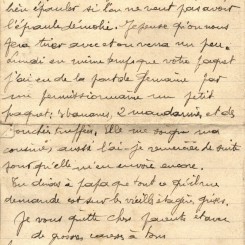 bien épauler si l'on ne veut pas avoir
l'épaule démolie. Je pense qu'on nous
fera tirer avec et on verra un peu.
Lundi en même temps que votre paquet
j'ai eu de la part de Germaine par
un permissionnaire un petit
paquet: 3 bananes, 2 mandarines, et des
bouchées truffées, elle me soigne ma
cousine, aussi l'ai-je remerciée de suite
pour qu'elle m'en envoie encore.
Tu diras à papa que tout ce qu'il me
demande est sur la vieille étagère,
Je vous quitte chers parents et
de grosses caresses à tous